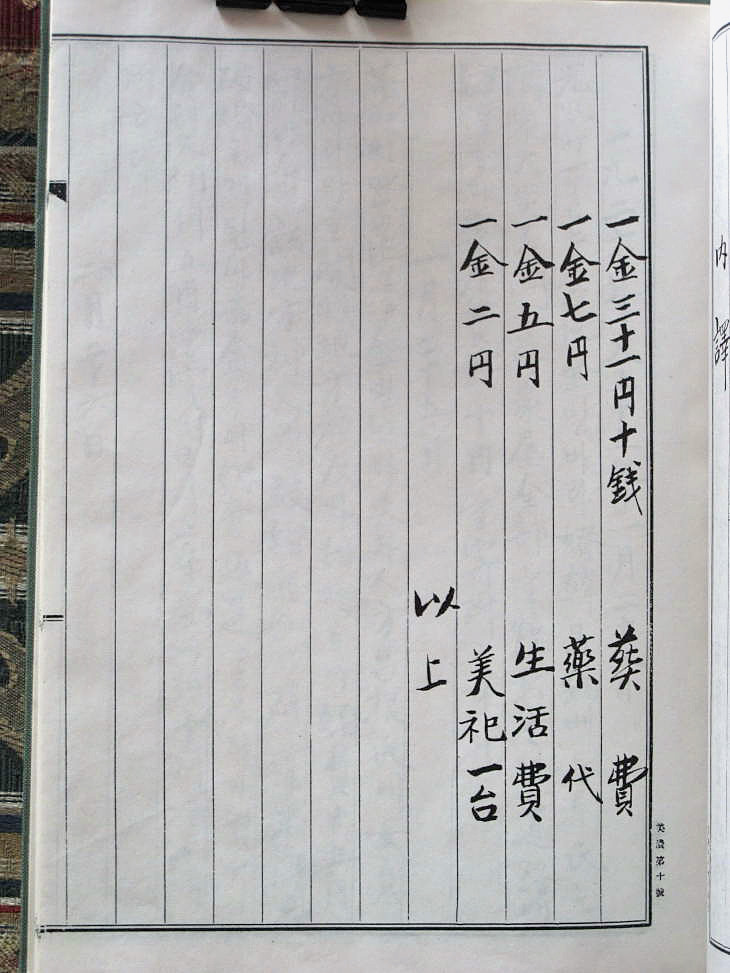 内譯
一金三十一円十銭 葬費
一金七円 藥代
一金五円 生活費
一金二円 美祀一台
以上
美濃第十號